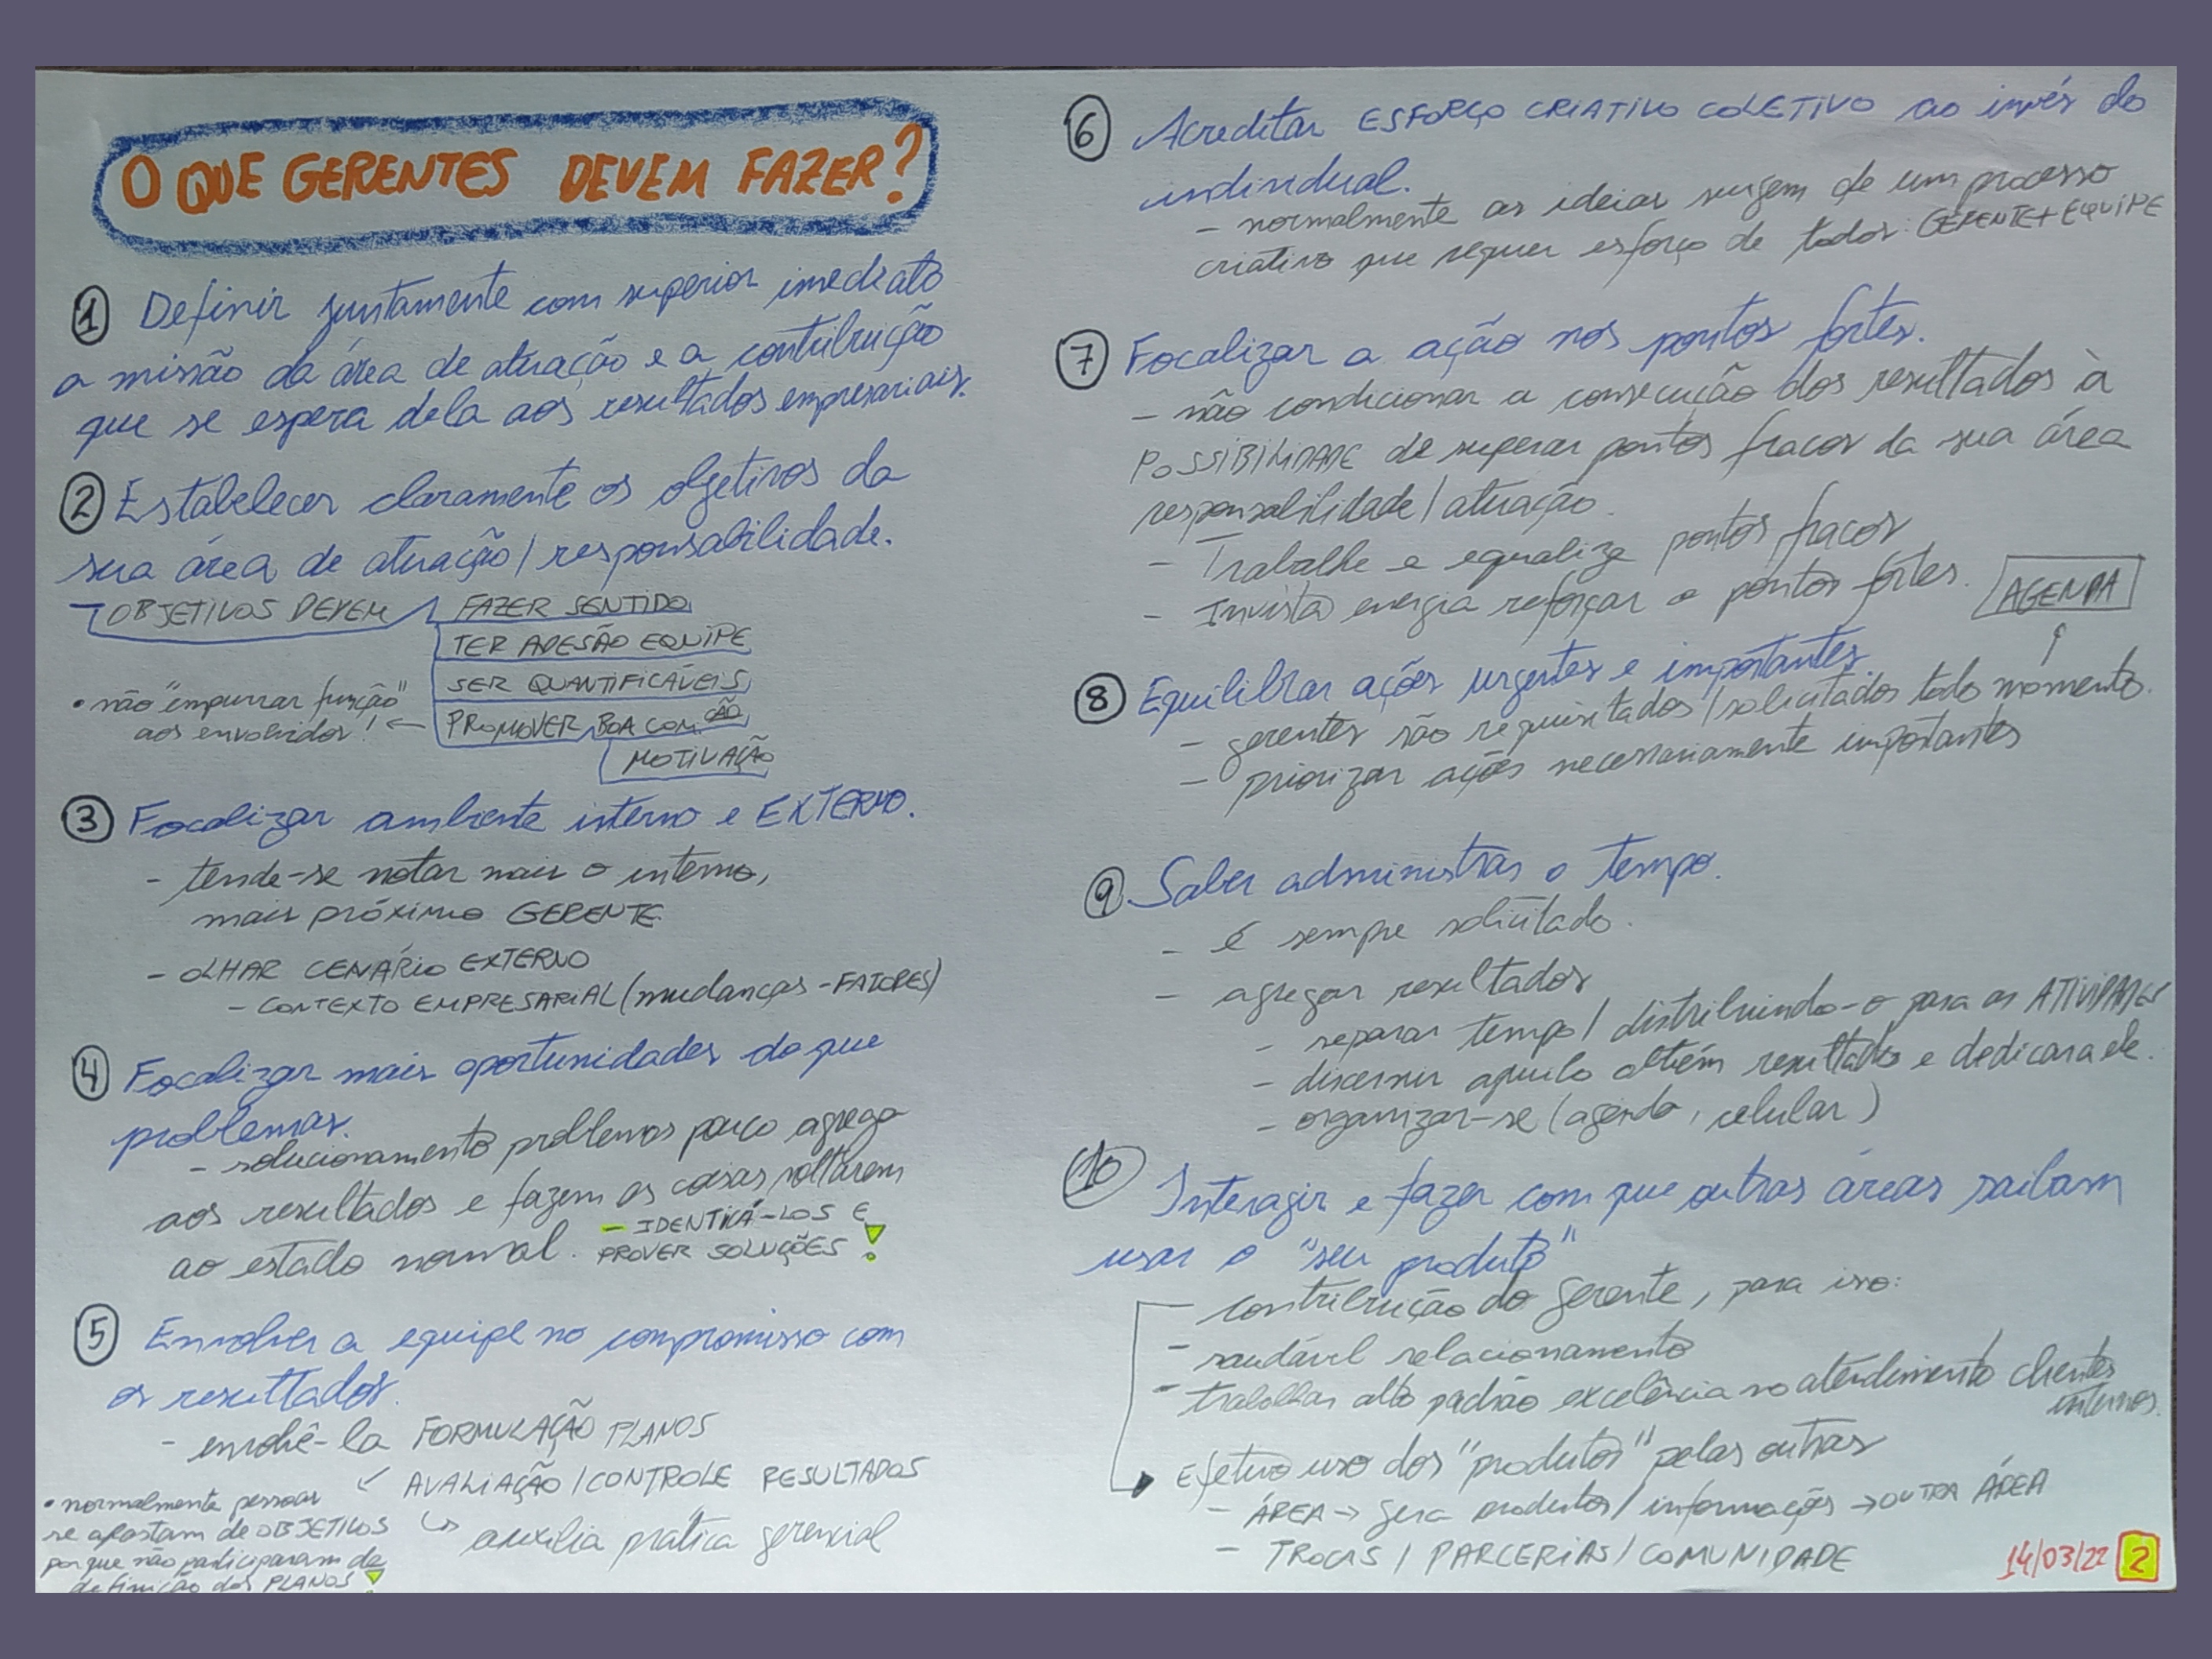 O QUE GERENTES DEVEM FAZER?
1 Definir juntamente com superior imediato
a missão da área de atuação e a contribuição
que se espera dela aos resultados empresariais.
2 Estabelecer claramente os objetivos da
sua área de atuação/responsabilidade.
OBJETIVOS DEVEM
FAZER SENTIDO
TER ADESÃO EQUIPE
SER QUANTIFICÁVEIS
PROMOVER BOA COM.CÃO
MOTIVAÇÃO
• não "empurrar função"
aos envolvidos! ←
3 Focalizar ambiente interno e EXTERNO.
- tende-se notar mais o interno,
mais próximo GERENTE
- OLHAR CENÁRIO EXTERNO
- CONTEXTO EMPRESARIAL (mudanças - FATORES)
4 Focalizar mais oportunidades do que
problemas.
- solucionamento problemas pouco agrega
aos resultados e fazem as coisas voltarem
ao estado normal.
- IDENTICÁ-LOS E
PROVER SOLUÇÕES !
5 Envolver a equipe no compromisso com
os resultados.
- envolvê-la FORMULAÇÃO PLANOS
AVALIAÇÃO / CONTROLE RESULTADOS
↳ auxilia prática gerencial
• normalmente pessoas
se afastam de OBJETIVOS
porque não participaram da
definição dos PLANOS !
6 Acreditar ESFORÇO CRIATIVO COLETIVO ao invés do
individual.
- normalmente as ideias surgem de um processo
criativo que requer esforço de todos: GERENTE + EQUIPE
7 Focalizar a ação nos pontos fortes.
- não condicionar a consecução dos resultados à
POSSIBILIDADE de superar pontos fracos da sua área
responsabilidade/atuação.
- Trabalhe e equalize pontos fracos
- Invista energia reforçar o pontos fortes.
AGENDA
8 Equilibrar ações urgentes e importantes.
- gerentes são requisitados/solicitados todo momento.
- priorizar ações necessariamente importantes
9 Saber administrar o tempo.
- é sempre solicitado.
- agregar resultados
- separar tempo/distribuindo-o para as ATIVIDADES
- discernir aquilo obtém resultados e dedicar a ele.
- organizar-se (agenda, celular)
10 Interagir e fazer com que outras áreas saibam
usar o "seu produto"
- contribuição do gerente, para isso:
- saudável relacionamento
- trabalhar alto padrão excelência no atendimento clientes
internos.
Efetivo uso dos "produtos" pelas outras
- ÁREA → gera produtos/informações → OUTRA ÁREA
- TROCAS / PARCERIAS / COMUNIDADE
14/03/22 2